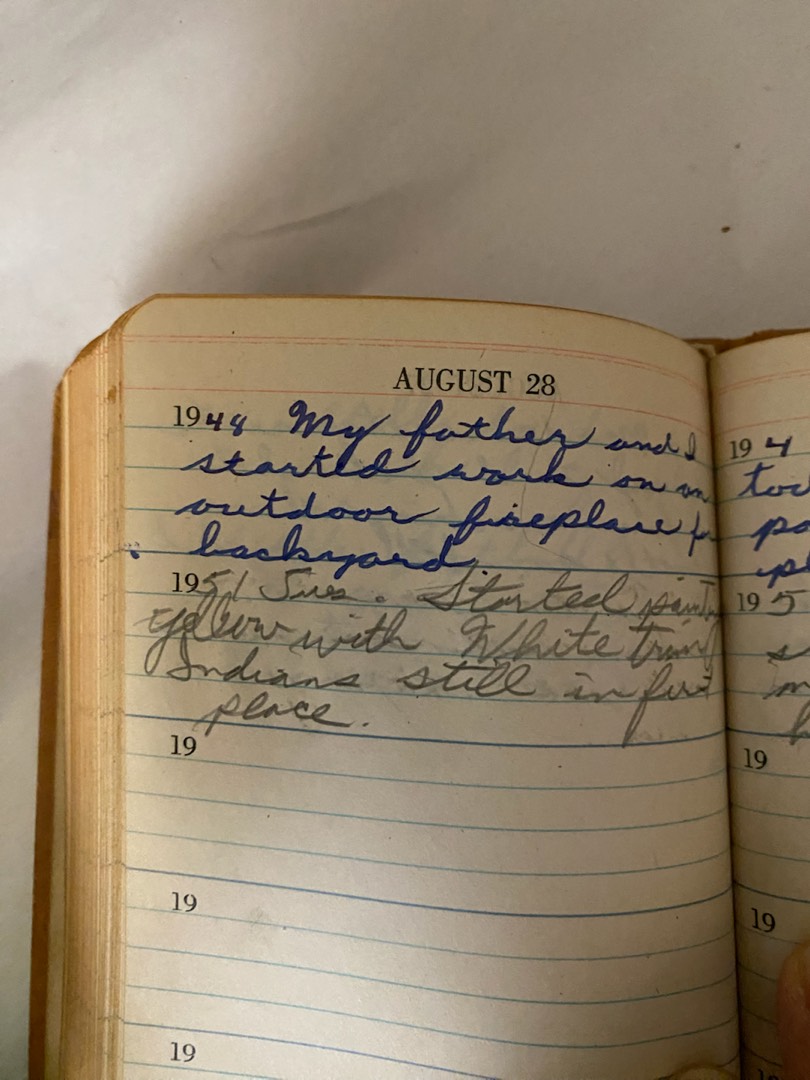 AUGUST 28
1948 My father and I
started work on an
outdoor fireplace
backyard
1951 Tues. Started
yellow with White trim
Indians still in first
place.
19
19
19
19 4
19 5
19
19